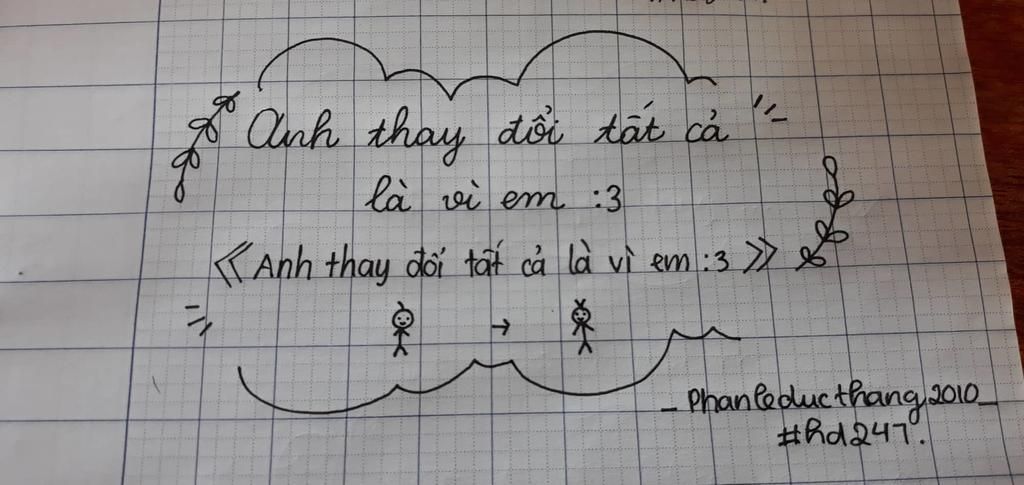 Anh thay đổi tất cả
là vì em :3
《Anh thay đổi tất cả là vì em :3》
_ Phanleducthang2010_
#hd247.